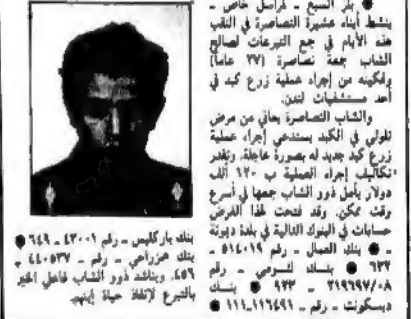 ● بئر السبع ـ لمراسل خاص ـ
ينشط أبناء عشيرة النصاصرة في النقب
هذه الأيام في جمع التبرعات لصالح
الشاب جمعة نصاصرة (٢٧ عاما)
وتمكينه من إجراء عملية زرع كبد في
أحد مستشفيات لندن.
والشاب النصاصرة يعاني من مرض
في الكبد يستدعي إجراء عملية
زرع كبد جديد له بصورة عاجلة. وتقدر
تكاليف إجراء العملية ب ١٢٠ ألف
دولار يأمل ذوو الشاب جمعها في أسرع
وقت ممكن. وقد فتحت لهذا الغرض
حسابات في البنوك التالية في بلدة ديمونة
ـ ● بنك العمال ـ رقم ٥١٤٠١٩ ـ
٦٣٢ ● بنك لئومي ـ رقم
٢١٩٦٩٧/٠٨ ـ ٩٣٣ ● بنك
ديسكونت ـ رقم ـ ١١٦٤٩١ـ١١١ ●
بنك باركليس ـ رقم ٤٣٠٠١ ـ ٦٤٩ ●
بنك همزراحي ـ رقم ٤٤٠٥٣٧ ـ
٤٥٦. ويناشد ذوو الشاب فاعلي الخير
بالتبرع لإنقاذ حياة إبنهم.